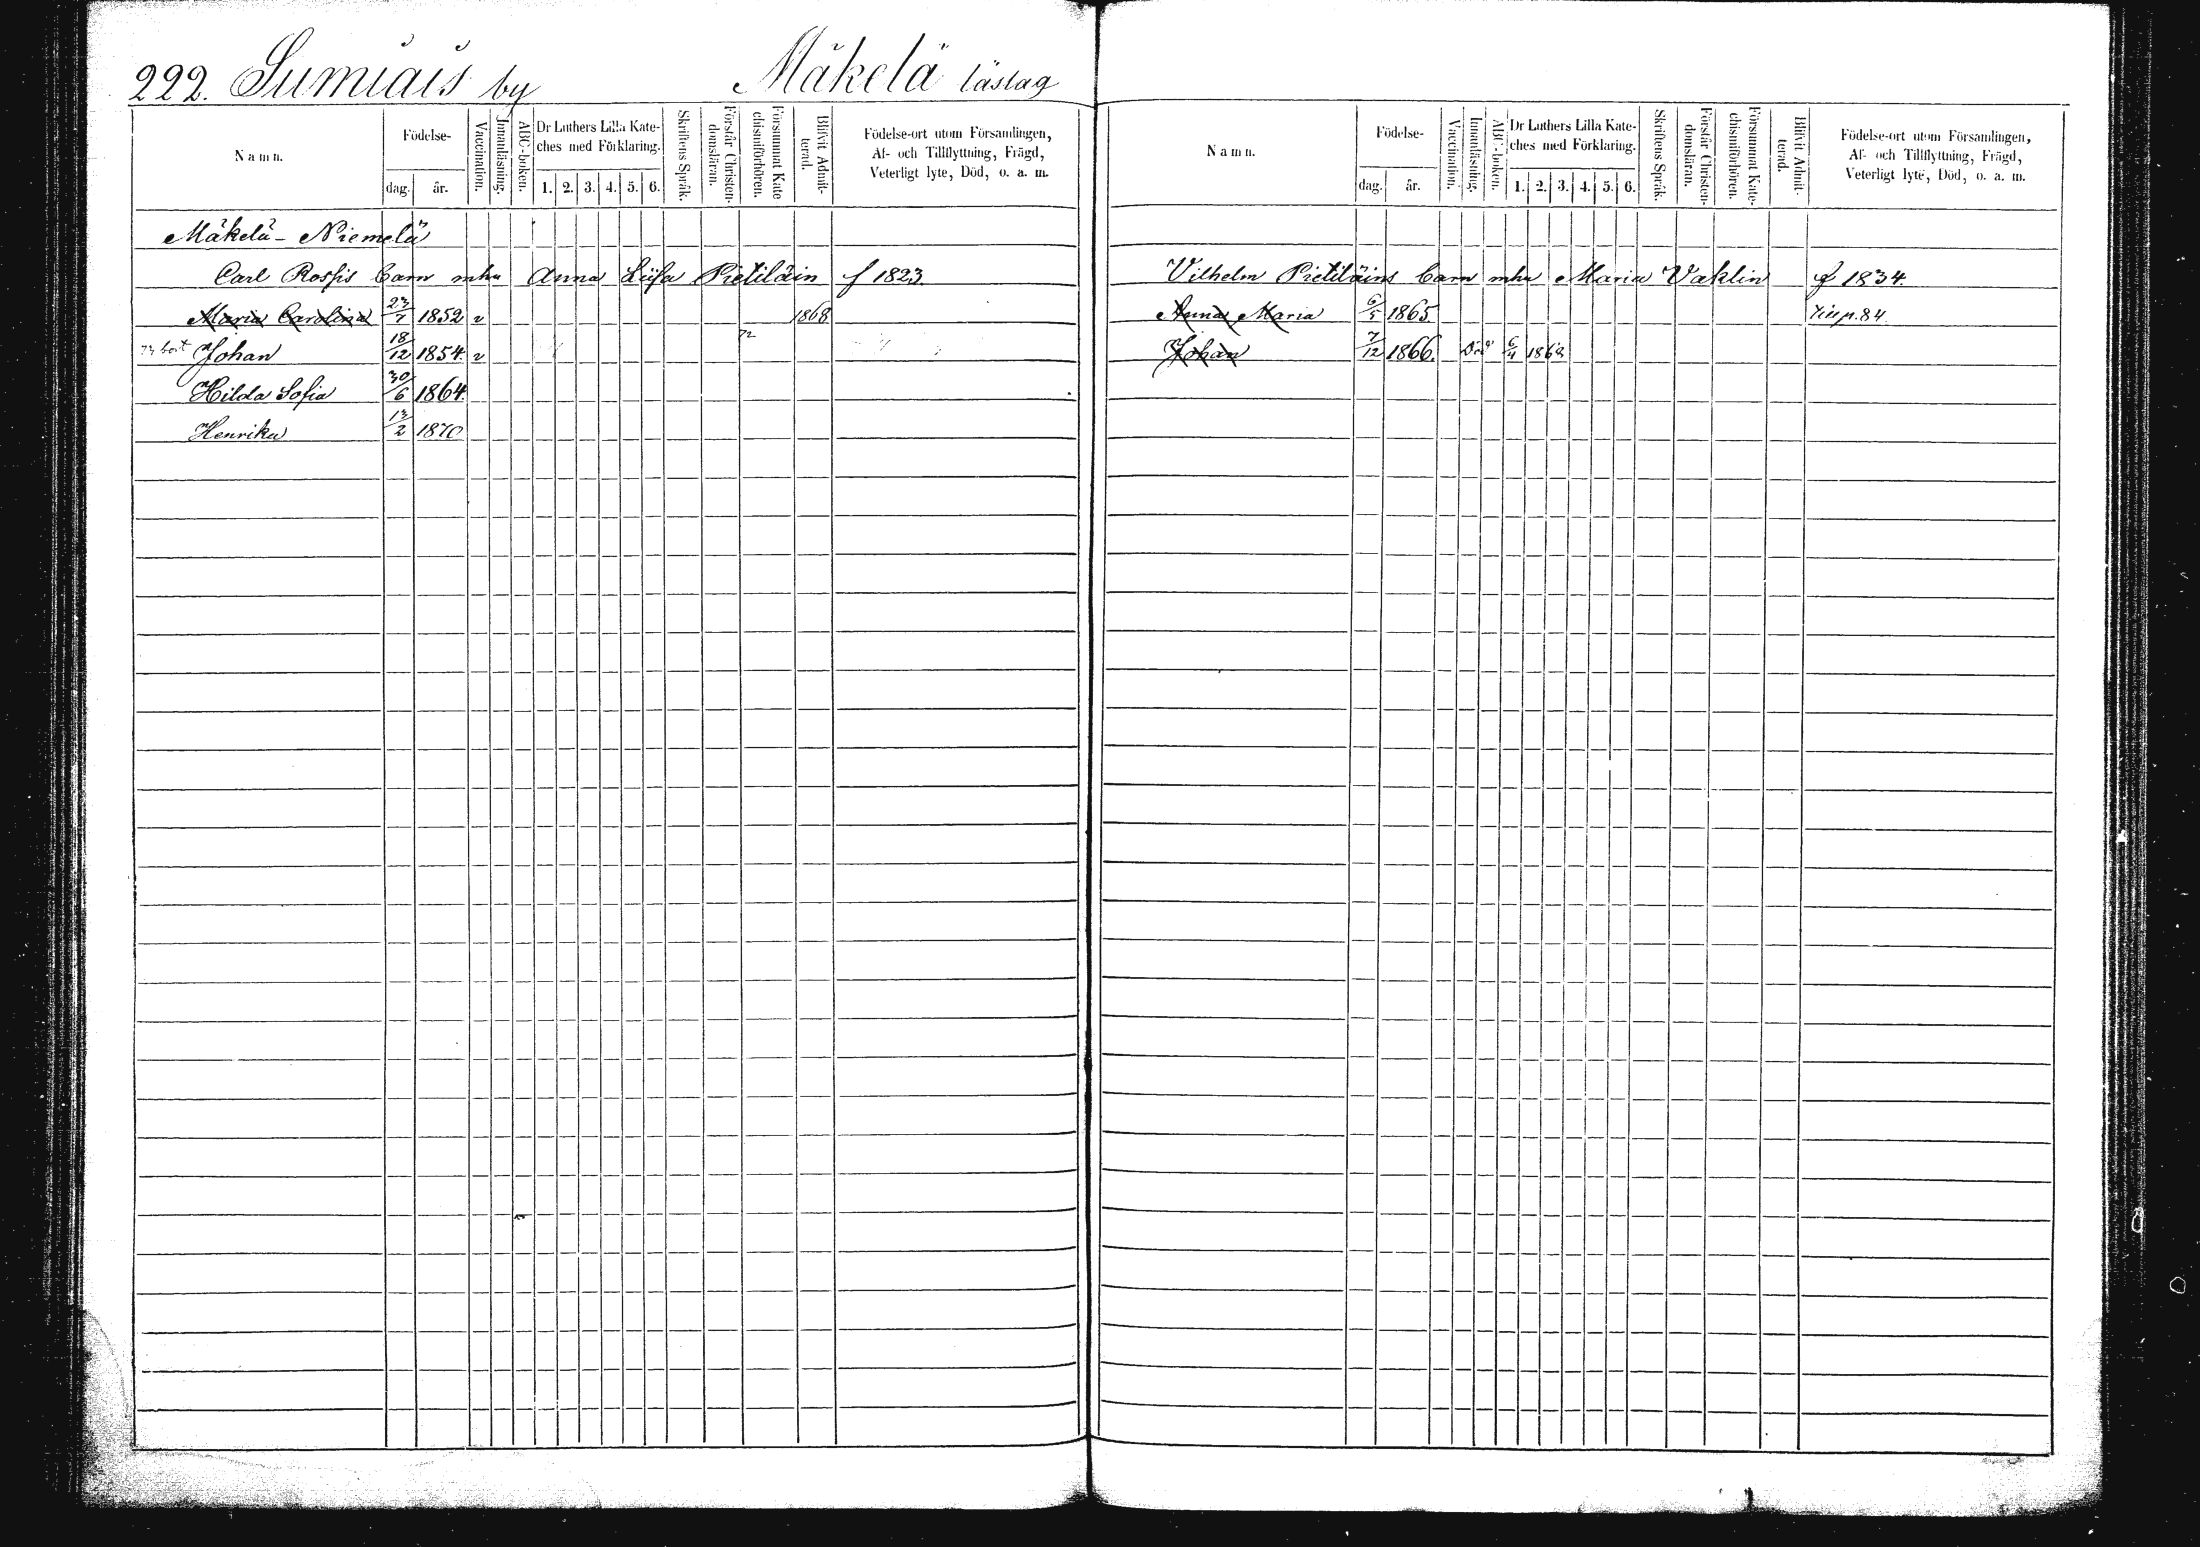 222. Sumiais by Mäkelä läslag
Namn. Födelse- dag. år. Vaccination. Innanläsning. ABC-boken. Dr Luthers Lilla Kate-ches med Förklaring. 1. 2. 3. 4. 5. 6. Skriftens Språk. Förstår Christen-domsläran. Försummat Kate chismiförhören. Blifvit Admit-terad. Födelse-ort utom Församlingen, Af- och Tillflyttning, Frägd, Veterligt lyte, Död, o. a. m.
Mäkelä - Niemelä
Carl Rossis barn mhu Anna Liisa Pietiläin f 1823.
Maria Carolina 23/7 1852 v 1868
73 bort Johan 18/12 1854. v 72
Hilda Sofia 30/6 1864.
Henrika 13/2 1870
Namn. Födelse- dag. år. Vaccination. Innanläsning. ABC-boken. Dr Luthers Lilla Kate-ches med Förklaring. 1. 2. 3. 4. 5. 6. Skriftens Språk. Förstår Christen-domsläran. Försummat Kate-chismiförhören. Blifvit Admit-terad. Födelse-ort utom Församlingen, Af- och Tillflyttning, Frägd, Veterligt lyte, Död, o. a. m.
Vilhelm Pietiläins barn mhu Maria Vaklin f 1834.
Anna Maria 6/5 1865 p. 84.
Johan 7/12 1866. Död 6/4 1868